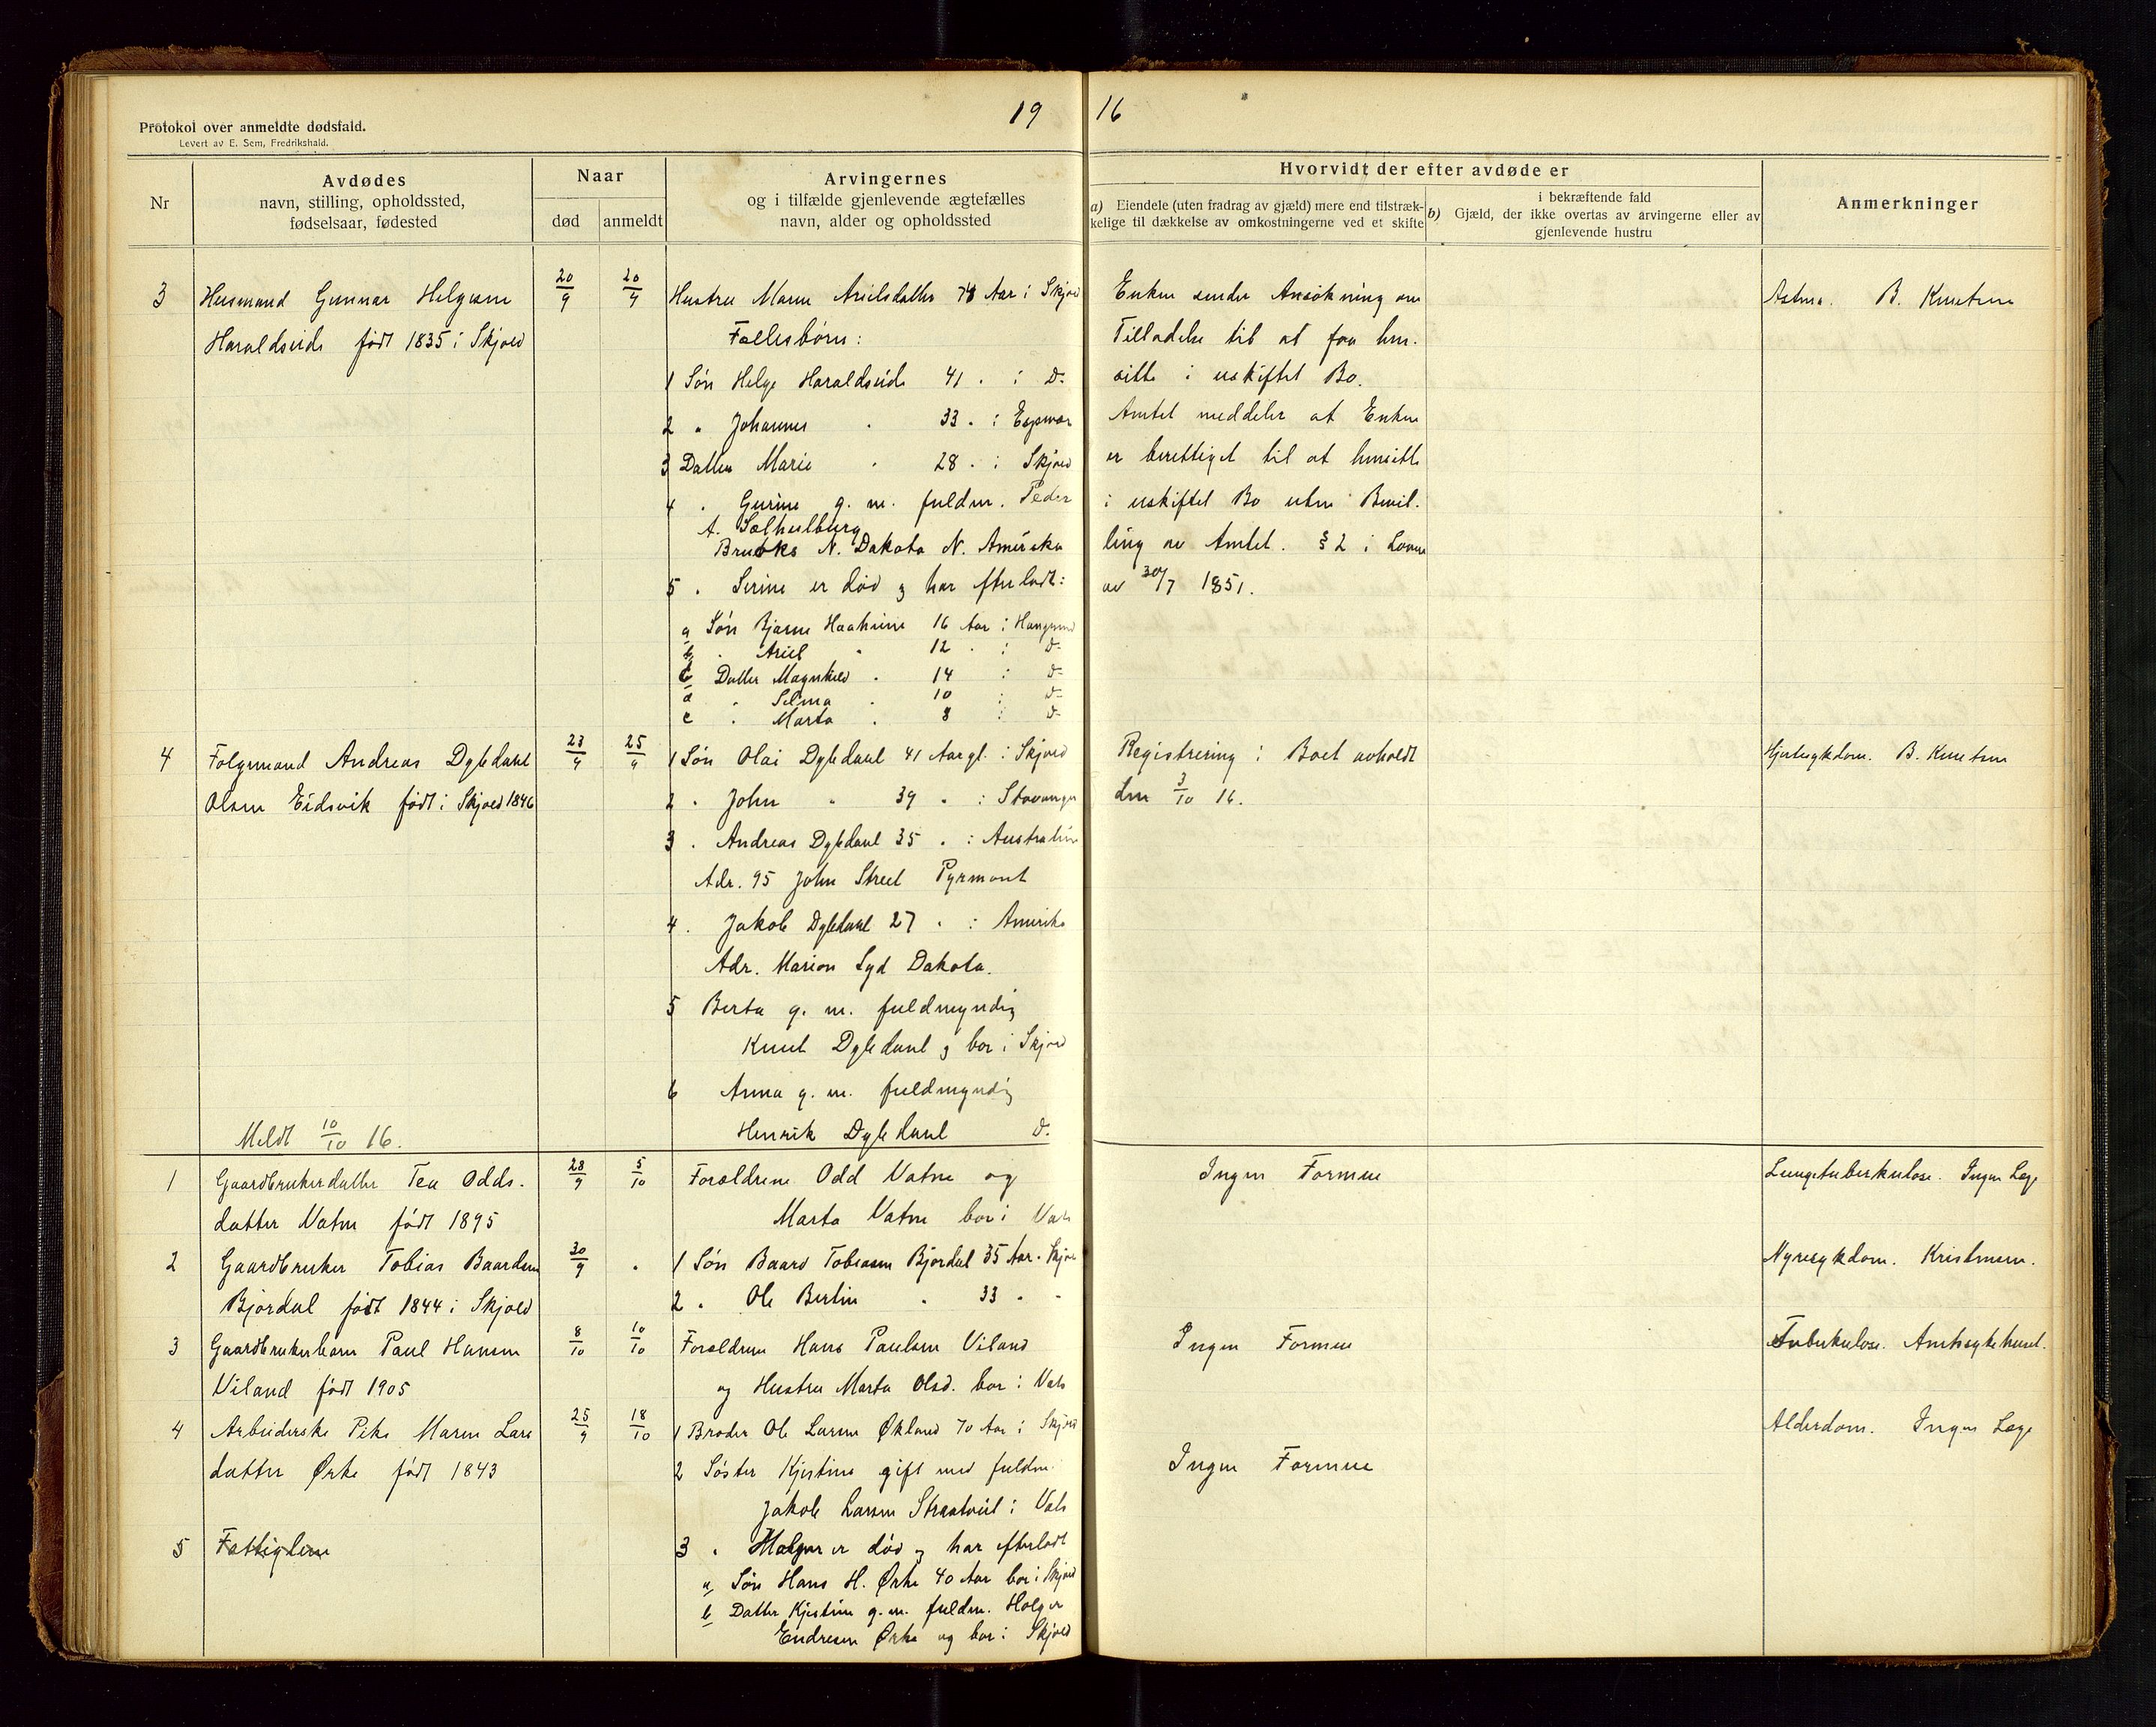 19 16
Protokol over anmeldte dødsfald.
Levert av E. Sem, Fredrikshald.
Nr
Avdødes
navn, stilling, opholdssted,
fødselsaar, fødested
Naar
død
anmeldt
Arvingernes
og i tilfælde gjenlevende ægtefælles
navn, alder og opholdssted
Hvorvidt der efter avdøde er
a) Eiendele (uten fradrag av gjæld) mere end tilstræk-
kelige til dækkelse av omkostningerne ved et skifte
i bekræftende fald
b) Gjæld, der ikke overtas av arvingerne eller av
gjenlevende hustru
Anmerkninger
3 Husmand Gunnar Helgesen
Haraldseide født 1835 i Skjold
20/9 20/9
Hustru Maren Arielsdatter Aar i Skjold
Fællesbørn:
1 Søn Helge Haraldseide 41 . i do
2 " Johannes . 33 . i
3 Datter Marie . 28 . i Skjold
4 . Gurine g. m. fuldm. Peder
A.
Brooks N. Dakota N. Amerika
5 . Serine er død og har efterladt:
a Søn Bjarne 16 Aar i
b . Ariel . 12 . i do
c Datter . 14 i do
d . Selma . 10 i do
e . Marta . 8 i do
Enken sender Ansøkning om
Tilladelse til at faa hen-
sitte i uskiftet Bo.
Amtet meddeler at Enken
er berettiget til at hensitte
i uskiftet Bo uten Bevil-
ling av Amtet. § 2 i Loven
av 30/7 1851.
Astma. B. Knutsen
4 Følgemand Andreas Dybdahl
Olsen Eidsvik født i Skjold 1846
23/9 25/9
1 Søn Olai Dybdahl 41 Aar gl. i Skjold
2 . John " 39 . i Stavanger
3 . Andreas Dybdahl 35 . i Australien
Adr. 95 John Street Pyrmont
4 . Jakob Dybdahl 27 . i Amerika
Adr. Marion Syd Dakota.
5 Berta g. m. fuldmyndig
Knut Dybdahl og bor i Skjold
6 Anna g. m. fuldmyndig
Henrik Dybdahl do
Registrering i Boet avholdt
den 3/10 16.
Hjertesykdom. B. Knutsen
Meldt 10/10 16.
1 Gaardbrukerdatter Tea Odds-
datter Vatne født 1895
28/9 5/10
Forældrene Odd Vatne og
Marta Vatne bor i Vats
Ingen Formue
Lungetuberkulose. Ingen Læge
2 Gaardbruker Tobias Baardsen
Bjordal født 1844 i Skjold
30/9 "
1 Søn Baard Tobiassen Bjordal 35 Aar . Skjold
2 . Ole Bertin . 33 . "
Nyresykdom. Kristensen.
3 Gaardbrukerbarn Paul Hansen
Viland født 1905
8/10 10/10
Forældrene Hans Paulsen Viland
og Hustru Marta Olsd. bor i Vats
Ingen Formue
Tuberkulose. Amtssykehuset.
4 Arbeiderske Pike Maren Lars
datter Ørke født 1843
25/9 18/10
1 Broder Ole Larsen Økland 70 Aar i Skjold
2 Søster Kjestina gift med fuldm.
Jakob Larsen i Vats
3 . Holger er død og har efterladt
a Søn Hans H. Ørke 40 Aar bor i Skjold
b Datter Kjestine g. m. fuldm. Holger
Endresen Ørke og bor i Skjold
Ingen Formue
Alderdom. Ingen Læge
5 Fattiglem